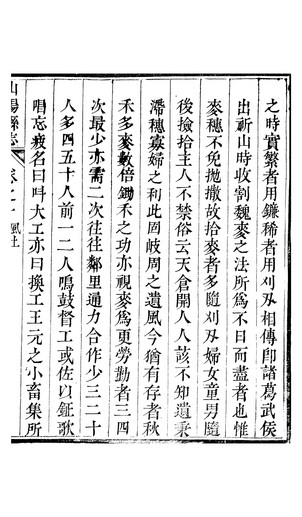 之時實繁者用鐮稀者用刈刄相傳卽諸葛武侯
出祈山時收割魏麥之法所爲不日而盡者也惟
麥穗不免拋撒故拾麥者多隨刈刄婦女童男隨
後撿拾主人不禁俗云天倉開人人該不知遺秉
滯穗寡婦之利此固岐周之遺風今猶有存者秋
禾多麥數倍鋤禾之功亦視麥爲更勞勤者三四
次最少亦需二次往往鄰里通力合作少三二十
人多四五十人前一二人鳴鼓督工或佐以鉦歌
唱忘疲名曰呌大工亦曰換工王元之小畜集所
山陽縣志 卷之 風土